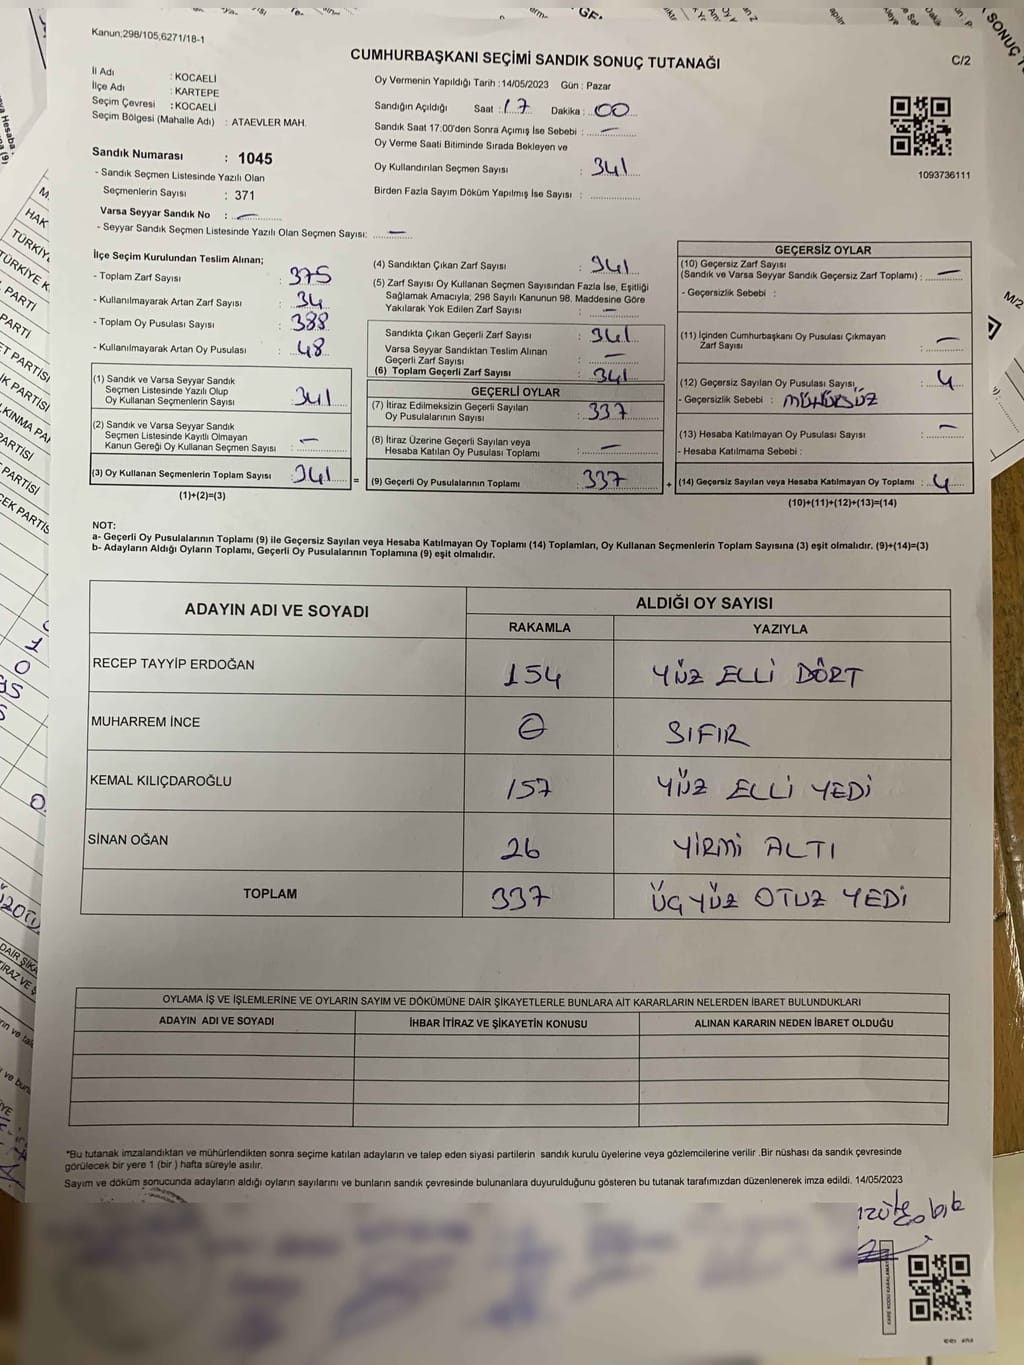 Kanun;298/105,6271/18-1
CUMHURBAŞKANI SEÇİMİ SANDIK SONUÇ TUTANAĞI
C/2
İl Adı : KOCAELİ
İlçe Adı : KARTEPE
Seçim Çevresi : KOCAELİ
Seçim Bölgesi (Mahalle Adı) : ATAEVLER MAH.
Sandık Numarası : 1045
- Sandık Seçmen Listesinde Yazılı Olan
Seçmenlerin Sayısı : 371
Varsa Seyyar Sandık No : —
- Seyyar Sandık Seçmen Listesinde Yazılı Olan Seçmen Sayısı: —
Oy Vermenin Yapıldığı Tarih : 14/05/2023 Gün : Pazar
Sandığın Açıldığı Saat : 17 Dakika : 00
Sandık Saat 17:00'den Sonra Açımış İse Sebebi : —
Oy Verme Saati Bitiminde Sırada Bekleyen ve
Oy Kullandırılan Seçmen Sayısı : 341
Birden Fazla Sayım Döküm Yapılmış İse Sayısı :
1093736111
İlçe Seçim Kurulundan Teslim Alınan;
- Toplam Zarf Sayısı : 375
- Kullanılmayarak Artan Zarf Sayısı : 34
- Toplam Oy Pusulası Sayısı : 388
- Kullanılmayarak Artan Oy Pusulası : 48
(1) Sandık ve Varsa Seyyar Sandık
Seçmen Listesinde Yazılı Olup
Oy Kullanan Seçmenlerin Sayısı : 341
(2) Sandık ve Varsa Seyyar Sandık
Seçmen Listesinde Kayıtlı Olmayan
Kanun Gereği Oy Kullanan Seçmen Sayısı : —
(3) Oy Kullanan Seçmenlerin Toplam Sayısı : 341 =
(1)+(2)=(3)
(4) Sandıktan Çıkan Zarf Sayısı : 341
(5) Zarf Sayısı Oy Kullanan Seçmen Sayısından Fazla İse, Eşitliği
Sağlamak Amacıyla; 298 Sayılı Kanunun 98. Maddesine Göre
Yakılarak Yok Edilen Zarf Sayısı : —
Sandıkta Çıkan Geçerli Zarf Sayısı : 341
Varsa Seyyar Sandıktan Teslim Alınan
Geçerli Zarf Sayısı : —
(6) Toplam Geçerli Zarf Sayısı : 341
GEÇERLİ OYLAR
(7) İtiraz Edilmeksizin Geçerli Sayılan
Oy Pusulalarının Sayısı : 337
(8) İtiraz Üzerine Geçerli Sayılan veya
Hesaba Katılan Oy Pusulası Toplamı : —
(9) Geçerli Oy Pusulalarının Toplamı : 337 +
GEÇERSİZ OYLAR
(10) Geçersiz Zarf Sayısı
(Sandık ve Varsa Seyyar Sandık Geçersiz Zarf Toplamı) : —
- Geçersizlik Sebebi :
(11) İçinden Cumhurbaşkanı Oy Pusulası Çıkmayan
Zarf Sayısı : —
(12) Geçersiz Sayılan Oy Pusulası Sayısı : 4
- Geçersizlik Sebebi : MÜHÜRSÜZ
(13) Hesaba Katılmayan Oy Pusulası Sayısı : —
- Hesaba Katılmama Sebebi :
(14) Geçersiz Sayılan veya Hesaba Katılmayan Oy Toplamı : 4
(10)+(11)+(12)+(13)=(14)
NOT:
a- Geçerli Oy Pusulalarının Toplamı (9) ile Geçersiz Sayılan veya Hesaba Katılmayan Oy Toplamı (14) Toplamları, Oy Kullanan Seçmenlerin Toplam Sayısına (3) eşit olmalıdır. (9)+(14)=(3)
b- Adayların Aldığı Oyların Toplamı, Geçerli Oy Pusulalarının Toplamına (9) eşit olmalıdır.
ADAYIN ADI VE SOYADI
ALDIĞI OY SAYISI
RAKAMLA YAZIYLA
RECEP TAYYİP ERDOĞAN 154 YÜZ ELLİ DÖRT
MUHARREM İNCE 0 SIFIR
KEMAL KILIÇDAROĞLU 157 YÜZ ELLİ YEDİ
SİNAN OĞAN 26 YİRMİ ALTI
TOPLAM 337 ÜÇ YÜZ OTUZ YEDİ
OYLAMA İŞ VE İŞLEMLERİNE VE OYLARIN SAYIM VE DÖKÜMÜNE DAİR ŞİKAYETLERLE BUNLARA AİT KARARLARIN NELERDEN İBARET BULUNDUKLARI
ADAYIN ADI VE SOYADI İHBAR İTİRAZ VE ŞİKAYETİN KONUSU ALINAN KARARIN NEDEN İBARET OLDUĞU
*Bu tutanak imzalandıktan ve mühürlendikten sonra seçime katılan adayların ve talep eden siyasi partilerin sandık kurulu üyelerine veya gözlemcilerine verilir .Bir nüshası da sandık çevresinde
görülecek bir yere 1 (bir ) hafta süreyle asılır.
Sayım ve döküm sonucunda adayların aldığı oyların sayılarını ve bunların sandık çevresinde bulunanlara duyurulduğunu gösteren bu tutanak tarafımızdan düzenlenerek imza edildi. 14/05/2023